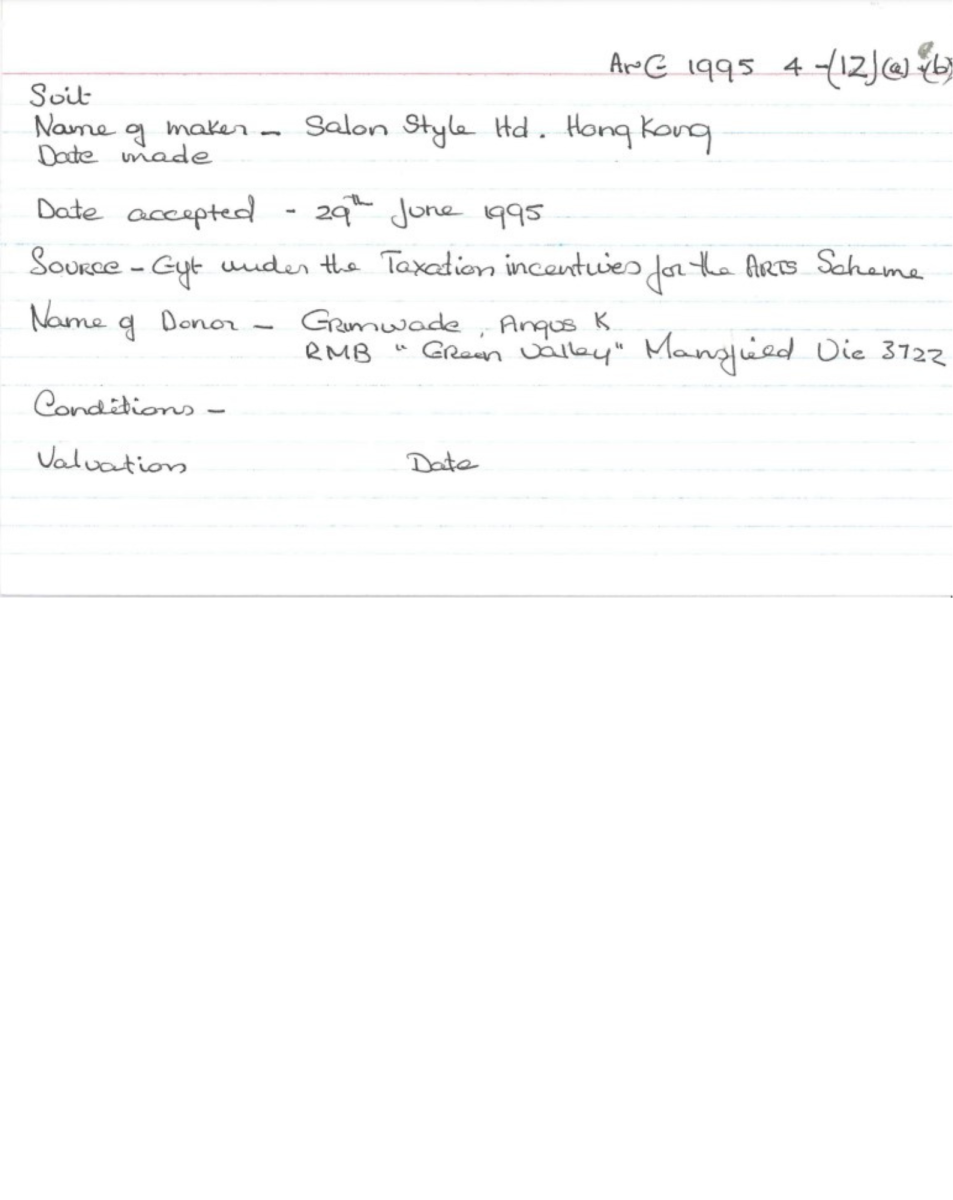 ArC 1995 4 -(12)(a) (b)
Suit
Name of maker - Salon Style Ltd. Hong Kong
Date made
Date accepted - 29th June 1995
Source - Gift under the Taxation incentives for the ARTS Scheme
Name of Donor - Grimwade, Angus K
RMB "Green Valley" Mansfield Vic 3722
Conditions -
Valuation Date